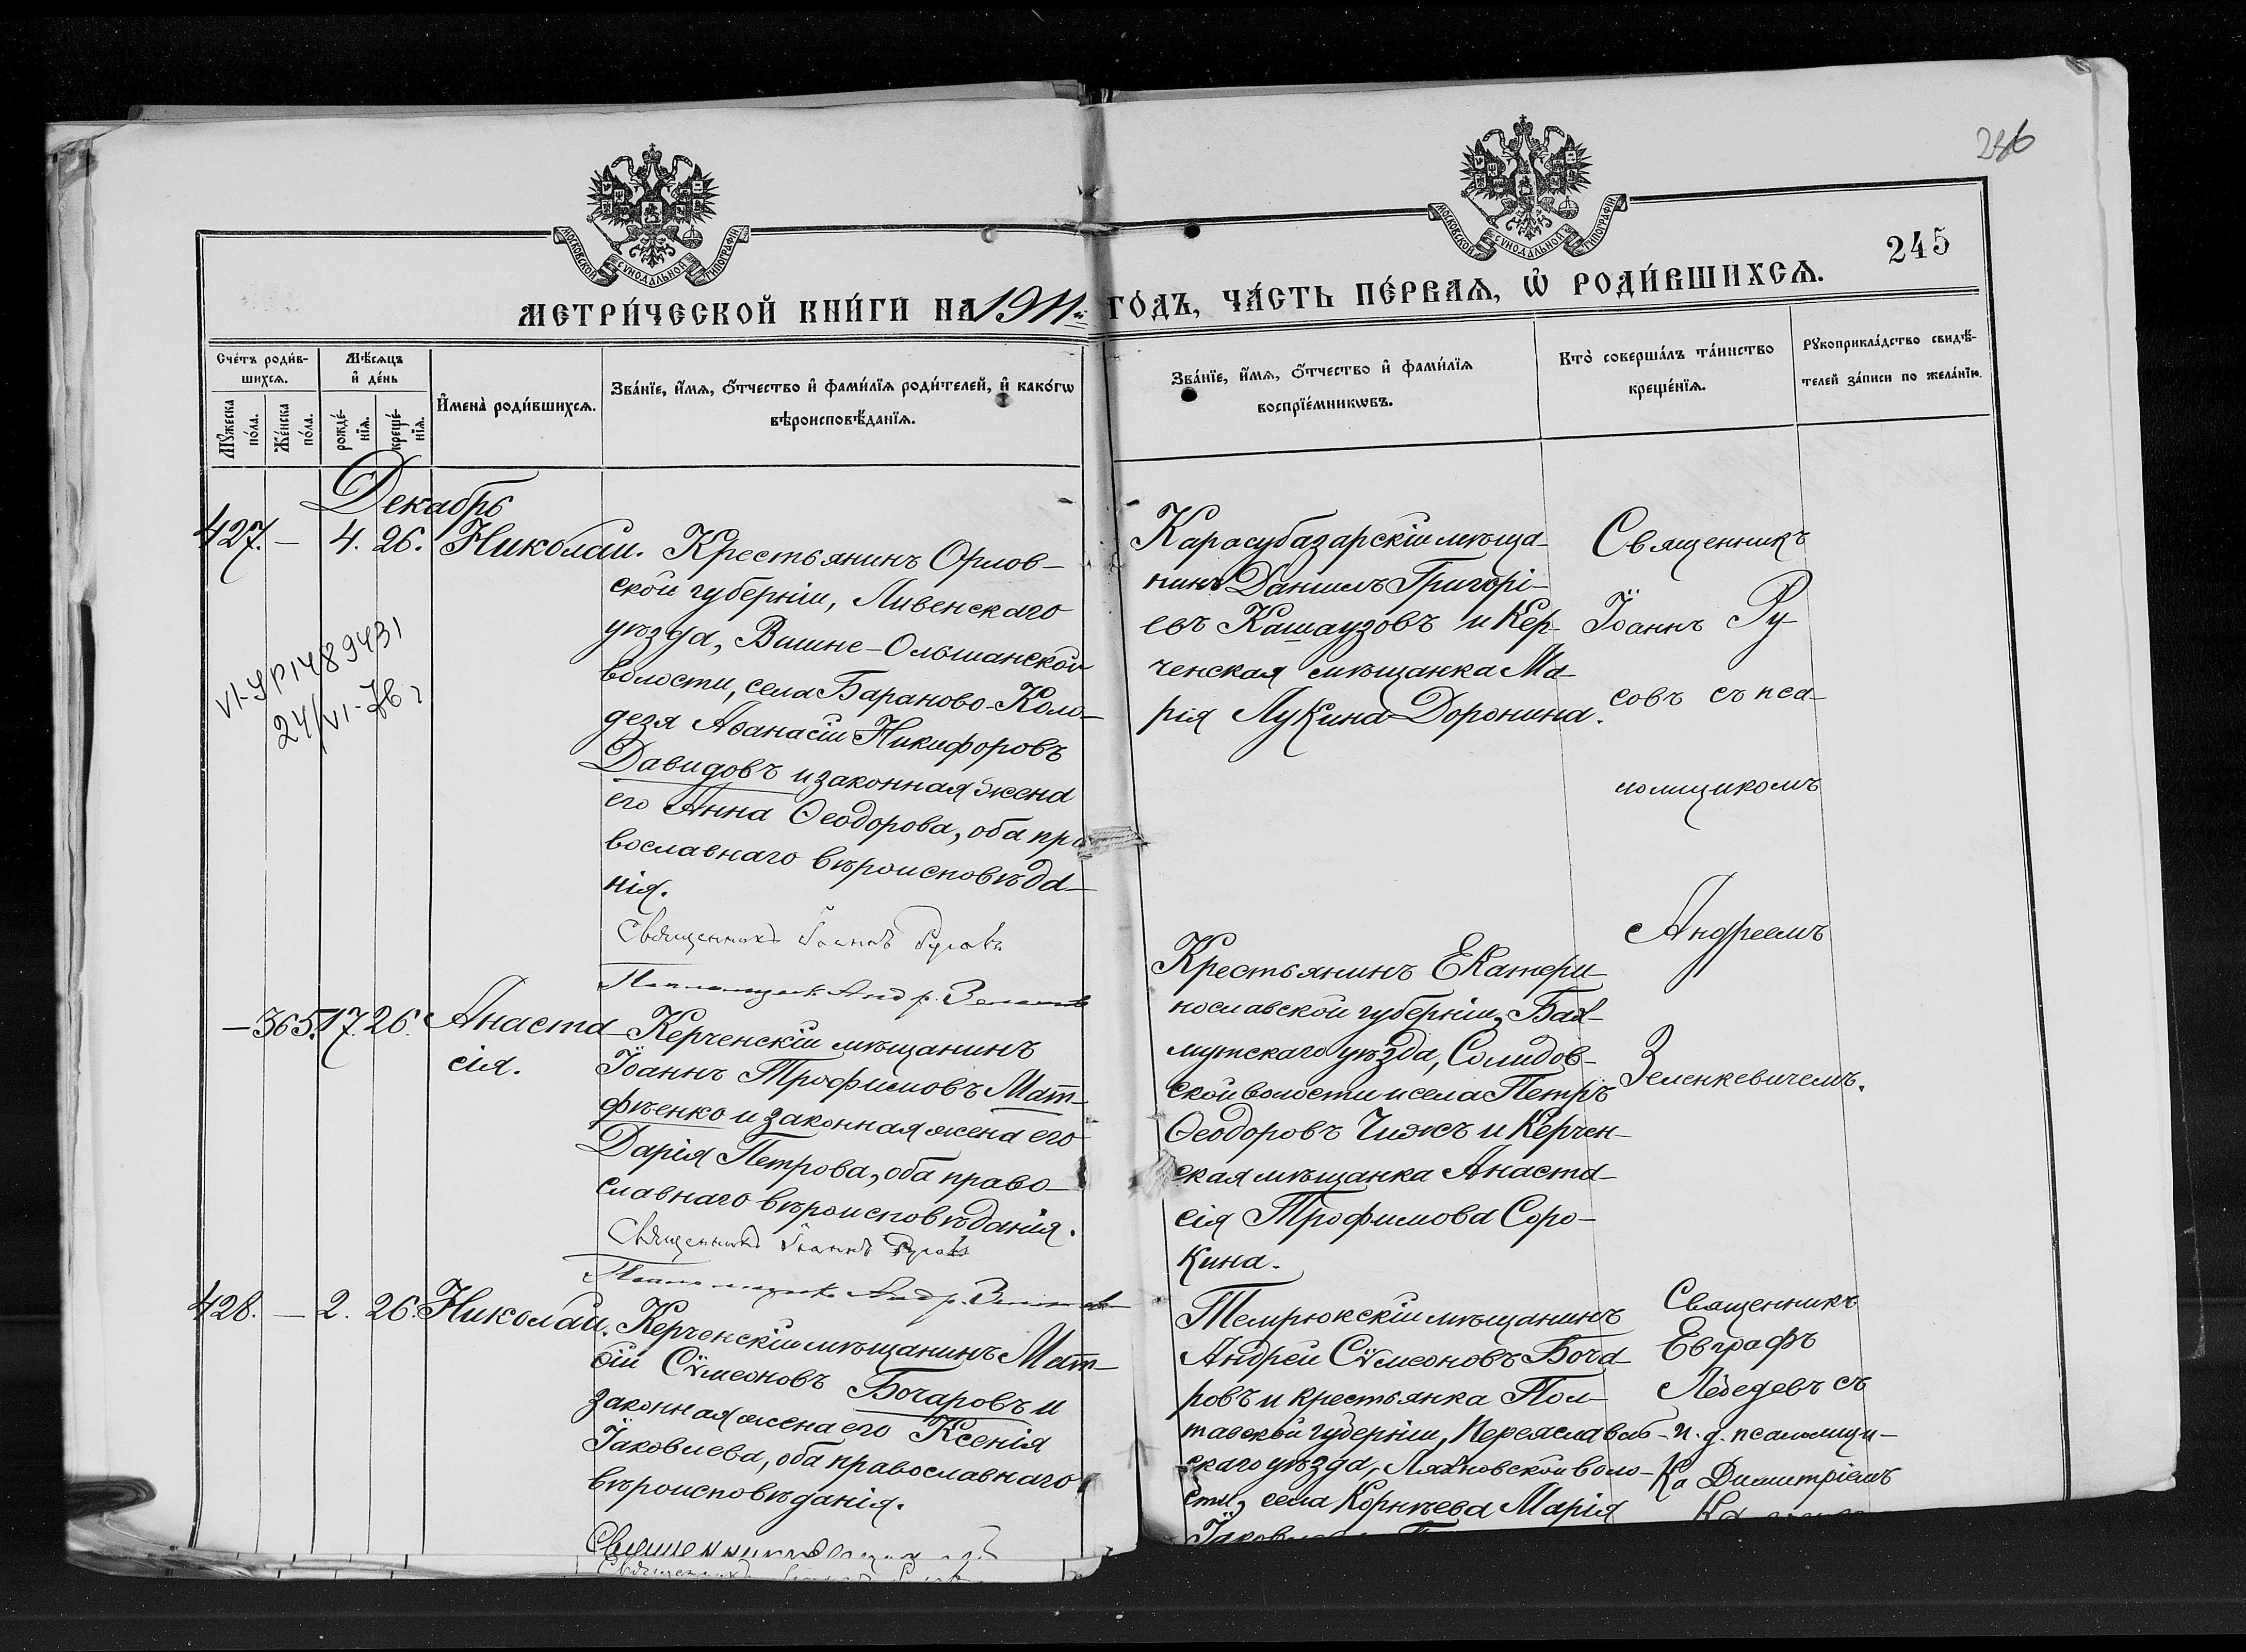 286
245
МОСКОВСКОЙ СѴНОДАЛЬНОЙ ТИПОГРАФІИ
МОСКОВСКОЙ СѴНОДАЛЬНОЙ ТИПОГРАФІИ
МЕТРИ́ЧЕСКОЙ КНИ́ГИ НА 1911й ГО́ДЪ, ЧА́СТЬ ПЕ́РВАѦ, Ѡ҆ РОДИ́ВШИХСѦ.
Сче́тъ роди́в-
шихсѧ.
Мꙋ́жеска
по́ла.
Же́нска
по́ла.
Мѣ́сѧцъ
и҆ де́нь
рожде́-
нїѧ.
креще́-
нїѧ.
И҆мена̀ роди́вшихсѧ.
Зва́нїе, и҆́мѧ, ѻ҆́тчество и҆ фами́лїѧ роди́телей, и҆ како́гѡ
вѣроисповѣ́данїѧ.
Зва́нїе, и҆́мѧ, ѻ҆́тчество и҆ фами́лїѧ
воспрїе́мникѡвъ.
Кто̀ соверша́лъ та́инство
креще́нїѧ.
Рꙋкоприкла́дство свидѣ́-
телей за́писи по жела́нїю.
Декабрь
427. — 4. 26. Николай.
VI-ЯР 1489431
24/VI-76 г
Крестьянинъ Орлов-
ской губерніи, Ливенскаго
уѣзда, Вишне-Ольшанской
волости, села Бараново-Коло-
дезя Аѳанасій Никифоровъ
Давидовъ и законная жена
его Анна Ѳеодорова, оба пра
вославнаго вѣроисповѣда-
нія.
Священникъ Іоаннъ Русовъ
Псаломщикъ Андр.
Карасубазарскій мѣща-
нинъ Даніилъ Григорі-
евъ Кашаузовъ и Кер-
ченская мѣщанка Ма-
рія Лукина Доронина.
Священникъ
Іоаннъ Ру
совъ съ пса-
ломщикомъ
Андреемъ
Зеленкевичемъ.
— 365. 17. 26. Анаста-
сія.
Керченскій мѣщанинъ
Іоаннъ Трофимовъ Мат-
фѣенко и законная жена его
Дарія Петрова, оба право-
славнаго вѣроисповѣданія.
Священникъ Іоаннъ Русовъ
Псаломщикъ Андр.
Крестьянинъ Екатери
нославской губерніи, Бах-
мутскаго уѣзда, Солидов-
ской волости и села Петръ
Ѳеодоровъ Чижъ и Керчен-
ская мѣщанка Анаста-
сія Трофимова Соро-
кина.
428. — 2. 26. Николай.
Керченскій мѣщанинъ Мат-
ѳій Сѵмеоновъ Бочаровъ и
законная жена его Ксенія
Іаковлева, оба православнаго
вѣроисповѣданія.
Темрюкскій мѣщанинъ
Андрей Сѵмеоновъ Боча-
ровъ и крестьянка Пол-
тавской губерніи, Переяслав-
скаго уѣзда, Ляховской воло-
сти, села Корнѣева Марія
Священникъ
Евграфъ
Лебедевъ съ
и. д. псаломщи-
ка Димитріемъ